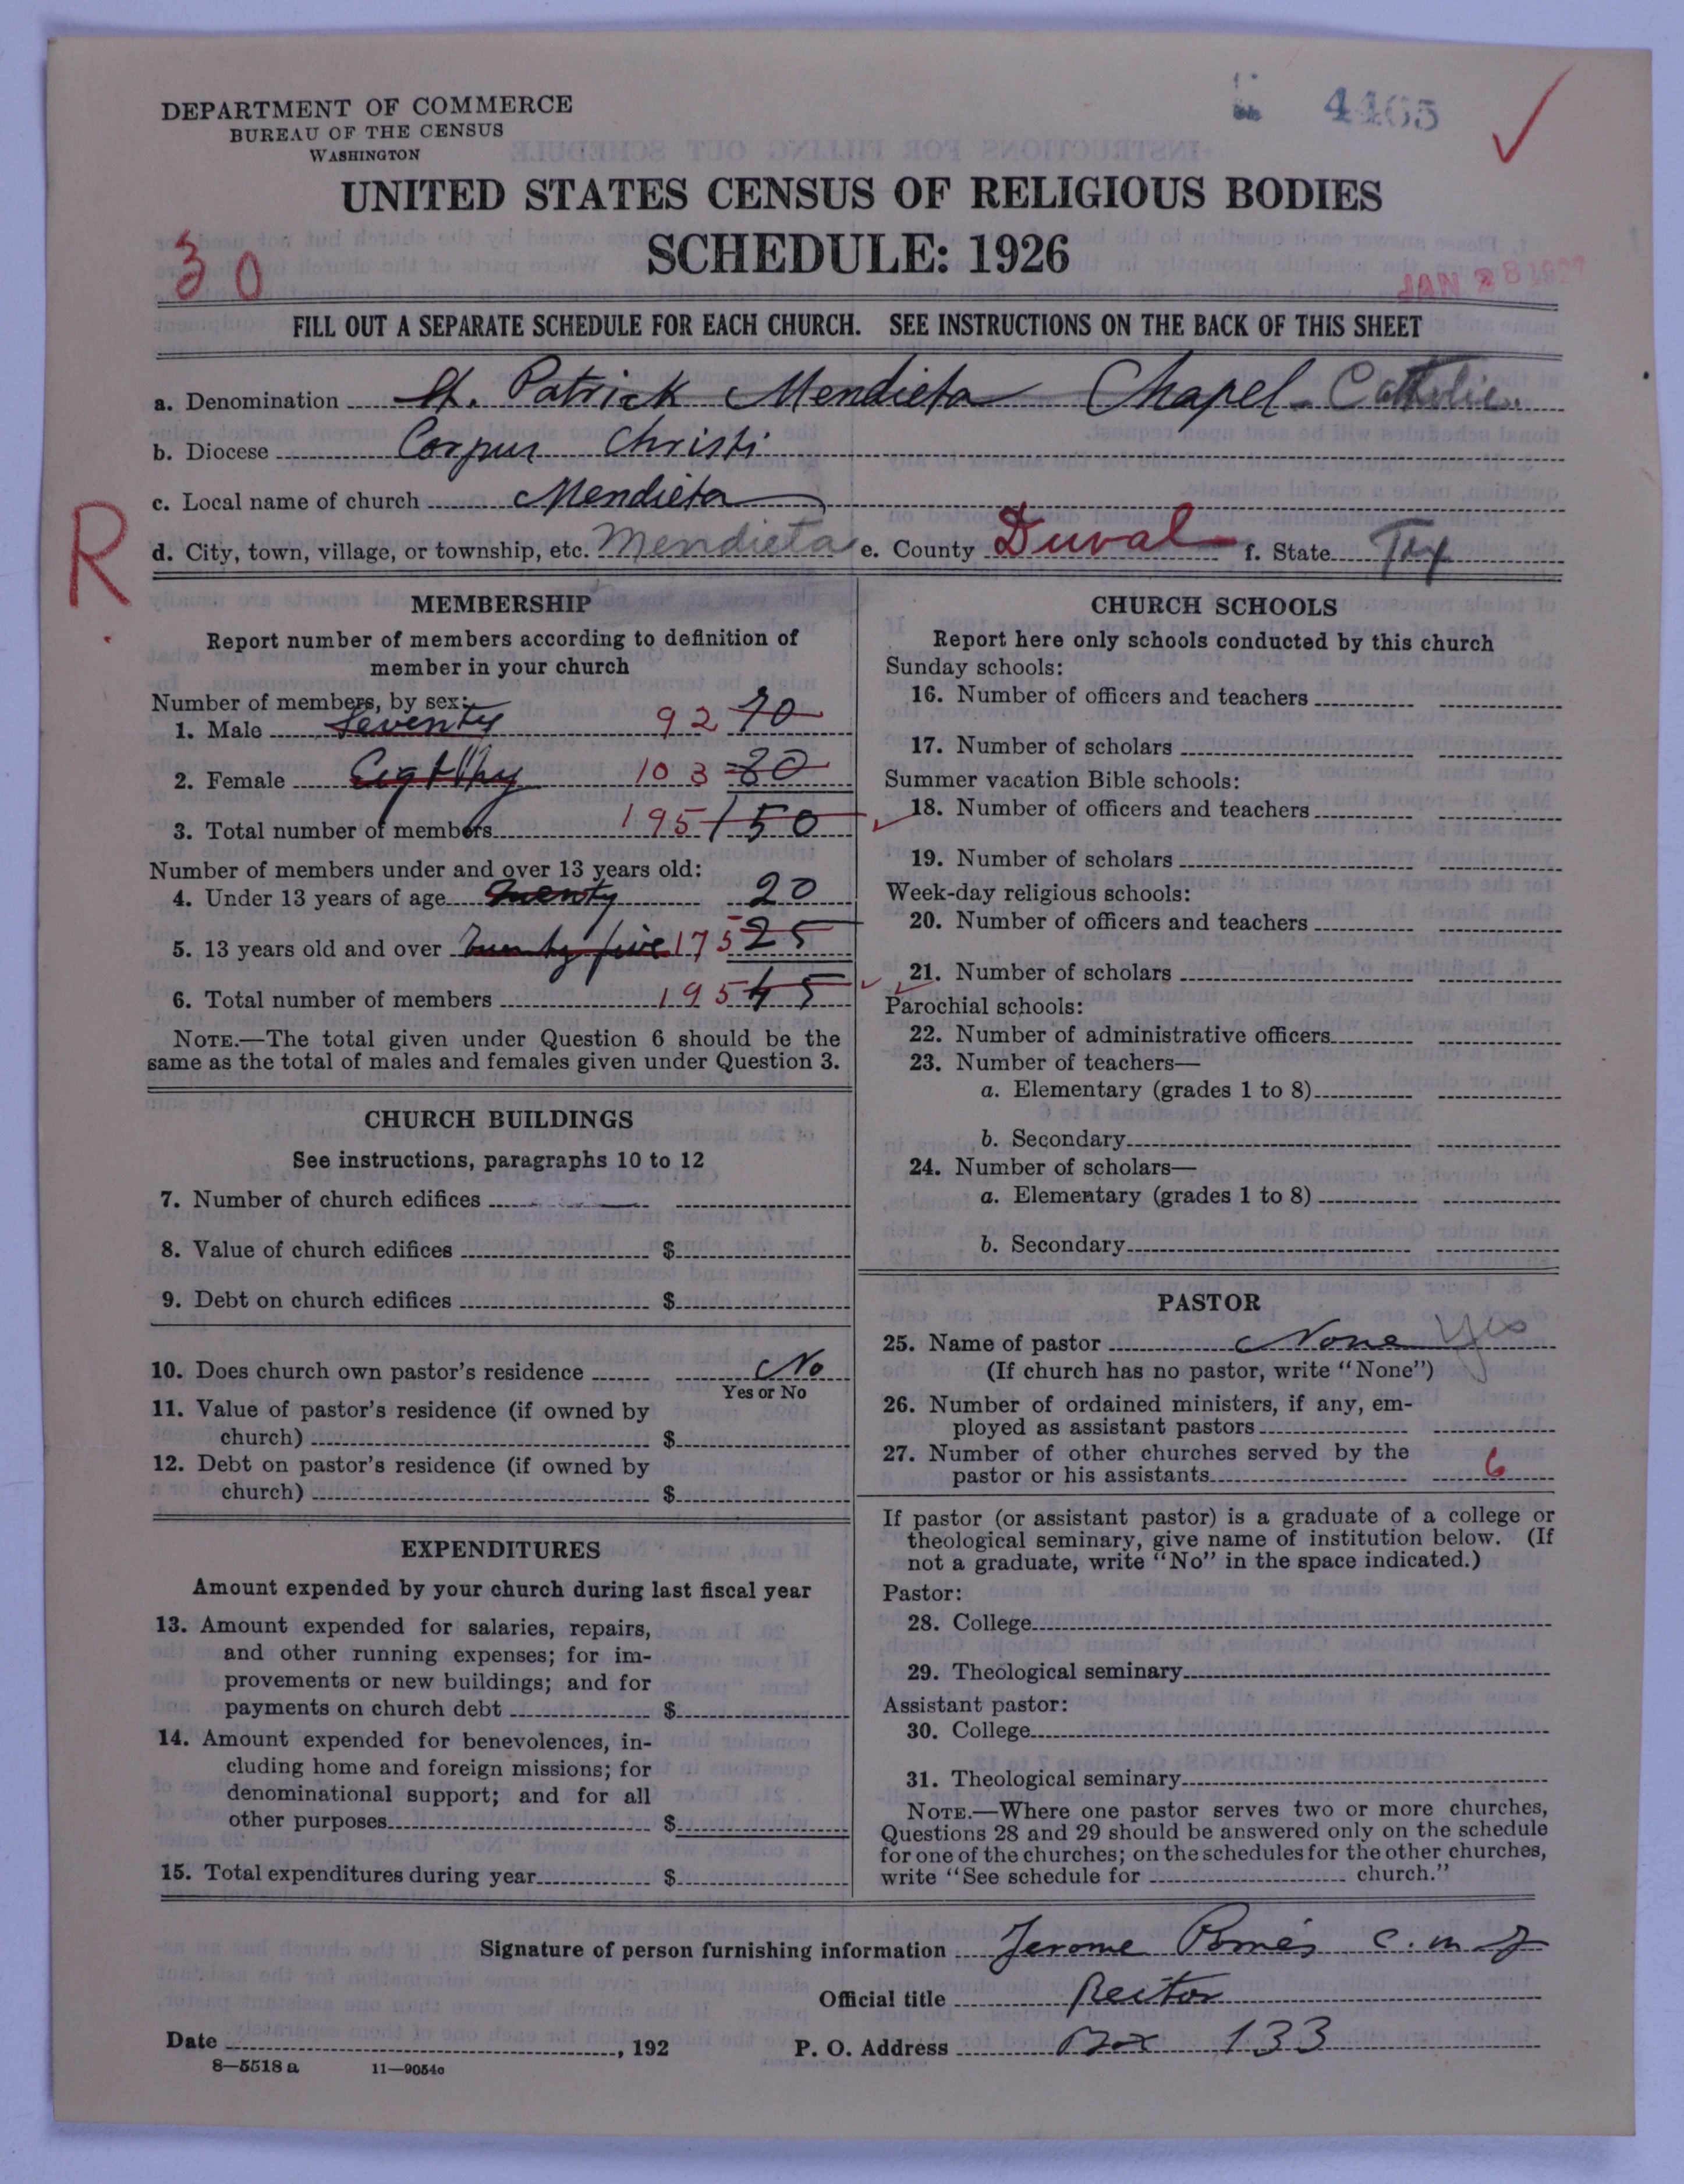 4465
DEPARTMENT OF COMMERCE
BUREAU OF THE CENSUS
WASHINGTON
UNITED STATES CENSUS OF RELIGIOUS BODIES
SCHEDULE: 1926
30
JAN 28 1927
FILL OUT A SEPARATE SCHEDULE FOR EACH CHURCH. SEE INSTRUCTIONS ON THE BACK OF THIS SHEET
a. Denomination St. Patrick Mendieta Chapel - Catholic.
b. Diocese Corpus Christi
c. Local name of church Mendieta
R
d. City, town, village, or township, etc. Mendieta e. County Duval f. State Tex
MEMBERSHIP
Report number of members according to definition of
member in your church
Number of members, by sex:
1. Male Seventy 92 70
2. Female 103 80
3. Total number of members 195 150
Number of members under and over 13 years old:
4. Under 13 years of age twenty 20
5. 13 years old and over twenty five 175 25
6. Total number of members 195 45
NOTE.—The total given under Question 6 should be the
same as the total of males and females given under Question 3.
CHURCH BUILDINGS
See instructions, paragraphs 10 to 12
7. Number of church edifices
8. Value of church edifices $
9. Debt on church edifices $
10. Does church own pastor's residence No
Yes or No
11. Value of pastor's residence (if owned by
church) $
12. Debt on pastor's residence (if owned by
church) $
EXPENDITURES
Amount expended by your church during last fiscal year
13. Amount expended for salaries, repairs,
and other running expenses; for im-
provements or new buildings; and for
payments on church debt $
14. Amount expended for benevolences, in-
cluding home and foreign missions; for
denominational support; and for all
other purposes $
15. Total expenditures during year $
CHURCH SCHOOLS
Report here only schools conducted by this church
Sunday schools:
16. Number of officers and teachers
17. Number of scholars
Summer vacation Bible schools:
18. Number of officers and teachers
19. Number of scholars
Week-day religious schools:
20. Number of officers and teachers
21. Number of scholars
Parochial schools:
22. Number of administrative officers
23. Number of teachers—
a. Elementary (grades 1 to 8)
b. Secondary
24. Number of scholars—
a. Elementary (grades 1 to 8)
b. Secondary
PASTOR
25. Name of pastor None Yes
(If church has no pastor, write "None")
26. Number of ordained ministers, if any, em-
ployed as assistant pastors
27. Number of other churches served by the
pastor or his assistants 6
If pastor (or assistant pastor) is a graduate of a college or
theological seminary, give name of institution below. (If
not a graduate, write "No" in the space indicated.)
Pastor:
28. College
29. Theological seminary
Assistant pastor:
30. College
31. Theological seminary
NOTE.—Where one pastor serves two or more churches,
Questions 28 and 29 should be answered only on the schedule
for one of the churches; on the schedules for the other churches,
write "See schedule for church."
Signature of person furnishing information Jerome Pomés c. m. f
Official title Rector
Date , 192 P. O. Address Box 133
8—5518 a 11—9054c